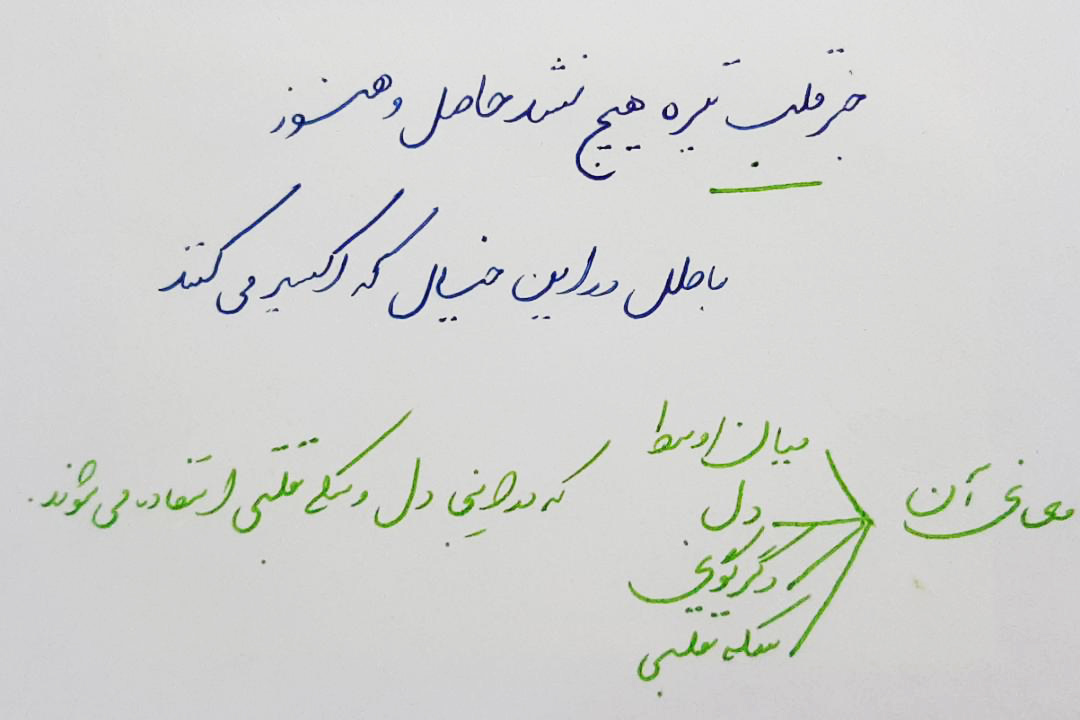 جز قلب تیره هیچ نشد حاصل و هنوز
باطل در این خیال که اکسیر می کنند
معانی آن
میان، وسط
دل
دگرگونی
سکه تقلبی
که در اینجا دل و سکه تقلبی استفاده می شوند.